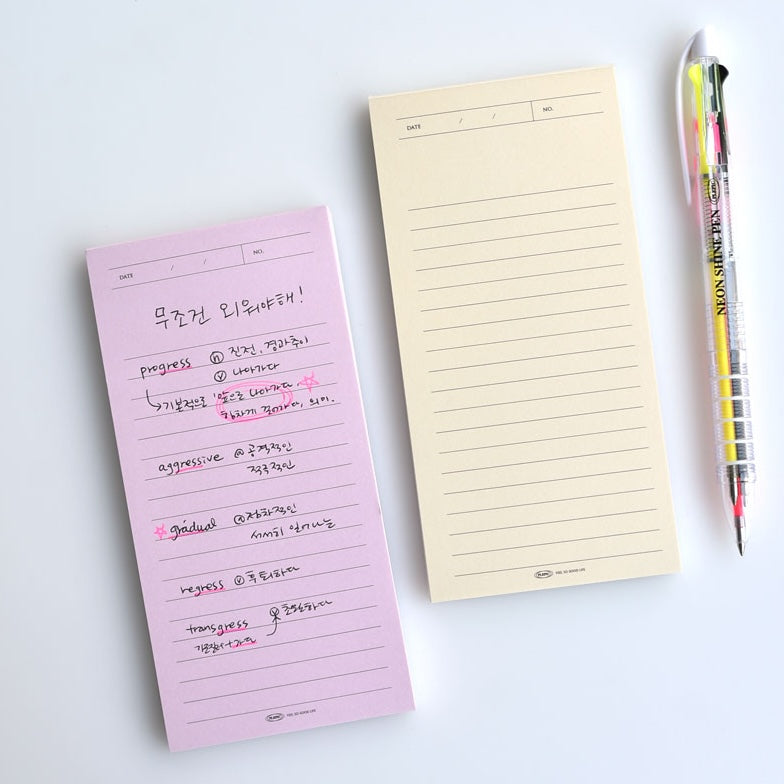 DATE / / NO.
무조건 외워야해!
progress ⓝ 진전, 경과추이
ⓥ 나아가다
↳기본적으로 '앞으로 나아가다.☆
걸어가다, 의미.
aggressive ⓐ 공격적인
적극적인
☆gradual ⓐ점차적인
서서히 일어나는
regress ⓥ후퇴하다
transgress ⓥ
+가다
PLEPLE YES, SO GOOD LIFE
DATE / / NO.
YES, SO GOOD LIFE
NEON SHINE PEN